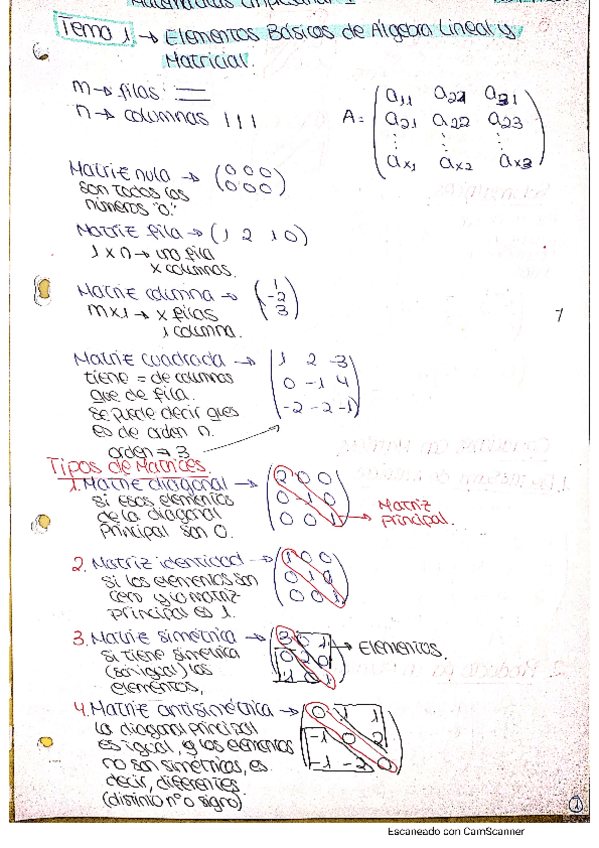 Matemáticas Empresarial I
Tema 1 → Elementos Básicos de Álgebra Lineal y
Matricial.
m → filas
n → columnas
A = ( a11 a22 a31
a21 a22 a23
⋮ ⋮ ⋮
ax1 ax2 ax3 )
Matriz nula → (0 0 0
son todos los 0 0 0)
números "0."
Matriz fila → (1 2 1 0)
1 x n → una fila
x columnas.
Matriz columna → ( 1
m x 1 → x filas -2
1 columna. 3 )
Matriz cuadrada → ( 1 2 -3
tiene = de columnas 0 -1 4
que de fila. -2 -2 -1 )
Se puede decir que es
es de orden n.
orden → 3
Tipos de Matrices.
1. Matriz diagonal → ( 2 0 0
si esos elementos 0 -1 0
de la diagonal 0 0 1 )
principal son 0.
Matriz
principal.
2. Matriz identidad → ( 1 0 0
si los elementos son 0 1 0
cero y la matriz 0 0 1 )
principal es 1.
3. Matriz simétrica → ( 3 0 1
si tiene simetría 0 2 0
(son igual) los 1 0 1 )
elementos,
→ Elementos.
4. Matriz antisimétrica → ( 0 1 1
la diagonal principal -1 0 2
es igual, y los elementos -1 -2 0 )
no son simétricos, es
decir, diferentes
(distinto nº o signo)
1
Escaneado con CamScanner